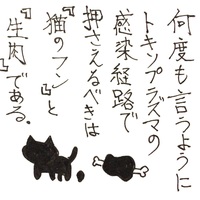 何度も言うように
トキソプラズマの
感染経路で
押さえるべきは
『猫のフン』と
『生肉』である.